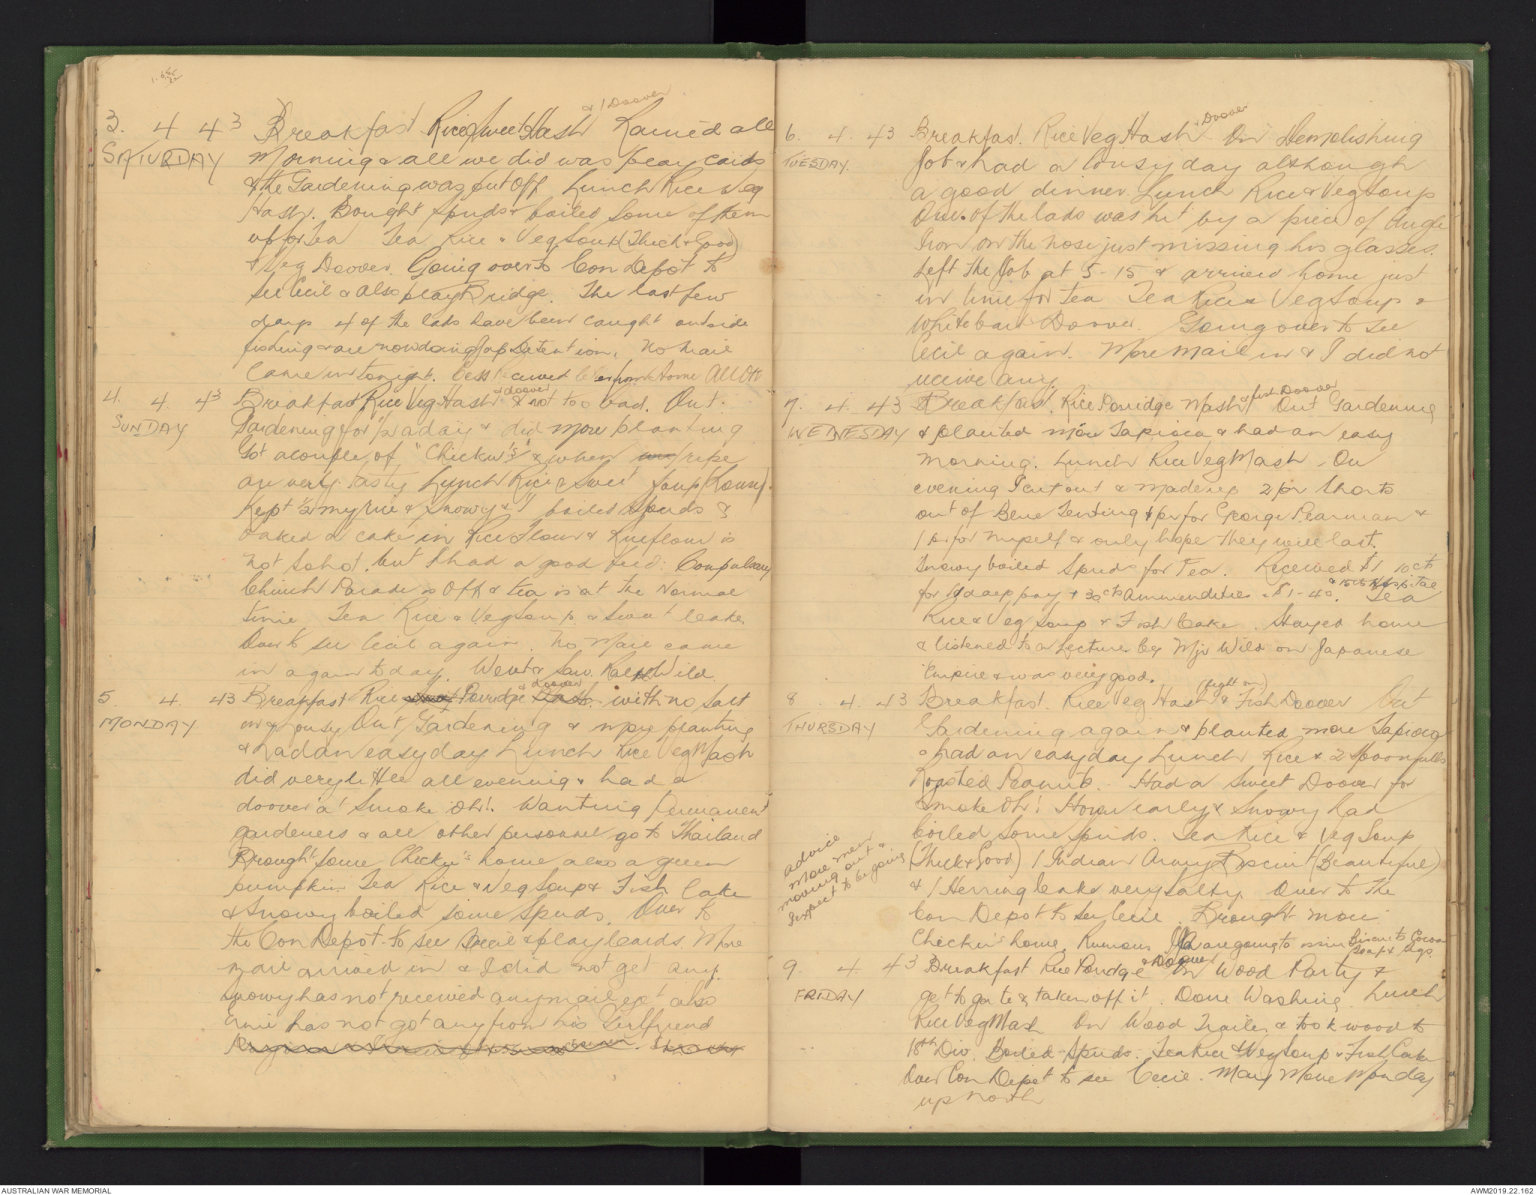 3. 4 43 Breakfast Rice Sweet Hash & 1 Doover Rained all
SATURDAY morning & all we did was play cards
& the Gardening was put off. Lunch Rice Veg
Hash. Bought spuds & boiled some of them
up for Tea Tea Rice & Veg Soup (Thick & Good)
& Veg Doover. Going over to Con Depot to
see Cecil & also play Bridge. The last few
days 4 of the lads have been caught outside
fishing & are now doing Jap Detention. No mail
came in tonight. Cecil received letter from Home All OK
4. 4. 43 Breakfast Rice Veg Hash & doover & not too bad. Out
SUNDAY Gardening for 1/2 a day & did more planting
Got a couple of "Checku's" & when ripe
are very tasty Lunch Rice & Sweet Soup (Lousy).
Kept 1/2 my rice & Snowy & I boiled Spuds &
baked a cake in Rice Flour & Rice flour is
not so hot but I had a good feed. Compulsory
Church Parade is Off & tea is at the Normal
time. Tea Rice & Veg Soup & Sweet Cake.
Over to see Cecil again. No Mail came
in again today. Went & saw Wild.
5 4 43 Breakfast Rice Porridge & doover with no salt
MONDAY in & lousy Out Gardening & more planting
& had an easy day Lunch Rice Veg Mash
did very little all evening & had a
doover at Smoke Oh!. Wanting Permanent
gardeners & all other personnel go to Thailand
Brought some Checku's home also a green
pumpkin. Tea Rice & Veg Soup & Fish Cake
& Snowy boiled some Spuds. Over to
the Con Depot to see Cecil & play Cards. More
mail arrived in & I did not get any.
Snowy has not received any mail yet also
Ernie has not got any from his Girlfriend
6. 4. 43 Breakfast. Rice Veg Hash & Doover On Demolishing
TUESDAY. Job & had a lousy day although
a good dinner Lunch Rice & Veg Soup
One of the lads was hit by a piece of Angle
Iron on the nose just missing his glasses.
Left the Job at 5-15 & arrived home just
in time for Tea Tea Rice & Veg Soup &
Whitebait Doover. Going over to see
Cecil again. More mail in & I did not
receive any.
7. 4. 43 Breakfast. Rice Porridge Mash & fish Doover Out Gardening
WEDNESDAY & planted more Tapioca & had an easy
morning. Lunch Rice Veg Mash On
evening I cut out & made up 2 pr Shorts
out of Tenting 1 pr for George Pearman &
1 pr for myself & only hope they will last.
Snowy boiled Spuds for Tea. Received $1 10cts
for 11 days pay & 30cts Ammendities & 15cts Hospital $1-40. Tea
Rice & Veg Soup & Fish Cake. Stayed home
& listened to a Lecture by Mjr Wild on Japanese
Empire & was very good.
8 4. 43 Breakfast. Rice Veg Hash (light on) & Fish Doover Out
THURSDAY Gardening again & planted more Tapioca
& had an easy day Lunch Rice & 2 Spoonfulls
Roasted Peanuts. Had a Sweet Doover for
Smoke Oh! Home early & Snowy had
boiled some Spuds. Tea Rice & Veg Soup
(Thick & Good) 1 Indian Army Biscuit (Beautiful)
& 1 Herring Cake very Salty Over to the
Con Depot to see Cecil. Brought more
Checkus home. Rumours Japs are going to issue Biscuits Cocoa
Soap & Cigs.
advice
more men
moving out &
expect to be going
9. 4 43 Breakfast Rice Porridge & Doover On Wood Party &
FRIDAY got to gate & taken off it. Done Washing. Lunch
Rice Veg Mash On Wood Trailer & took wood to
18th Div. Boiled Spuds. Tea Rice & Veg Soup & Fish Cake
Over Con Depot to see Cecil. Many More Monday
up North
AUSTRALIAN WAR MEMORIAL
AWM2019.22.162